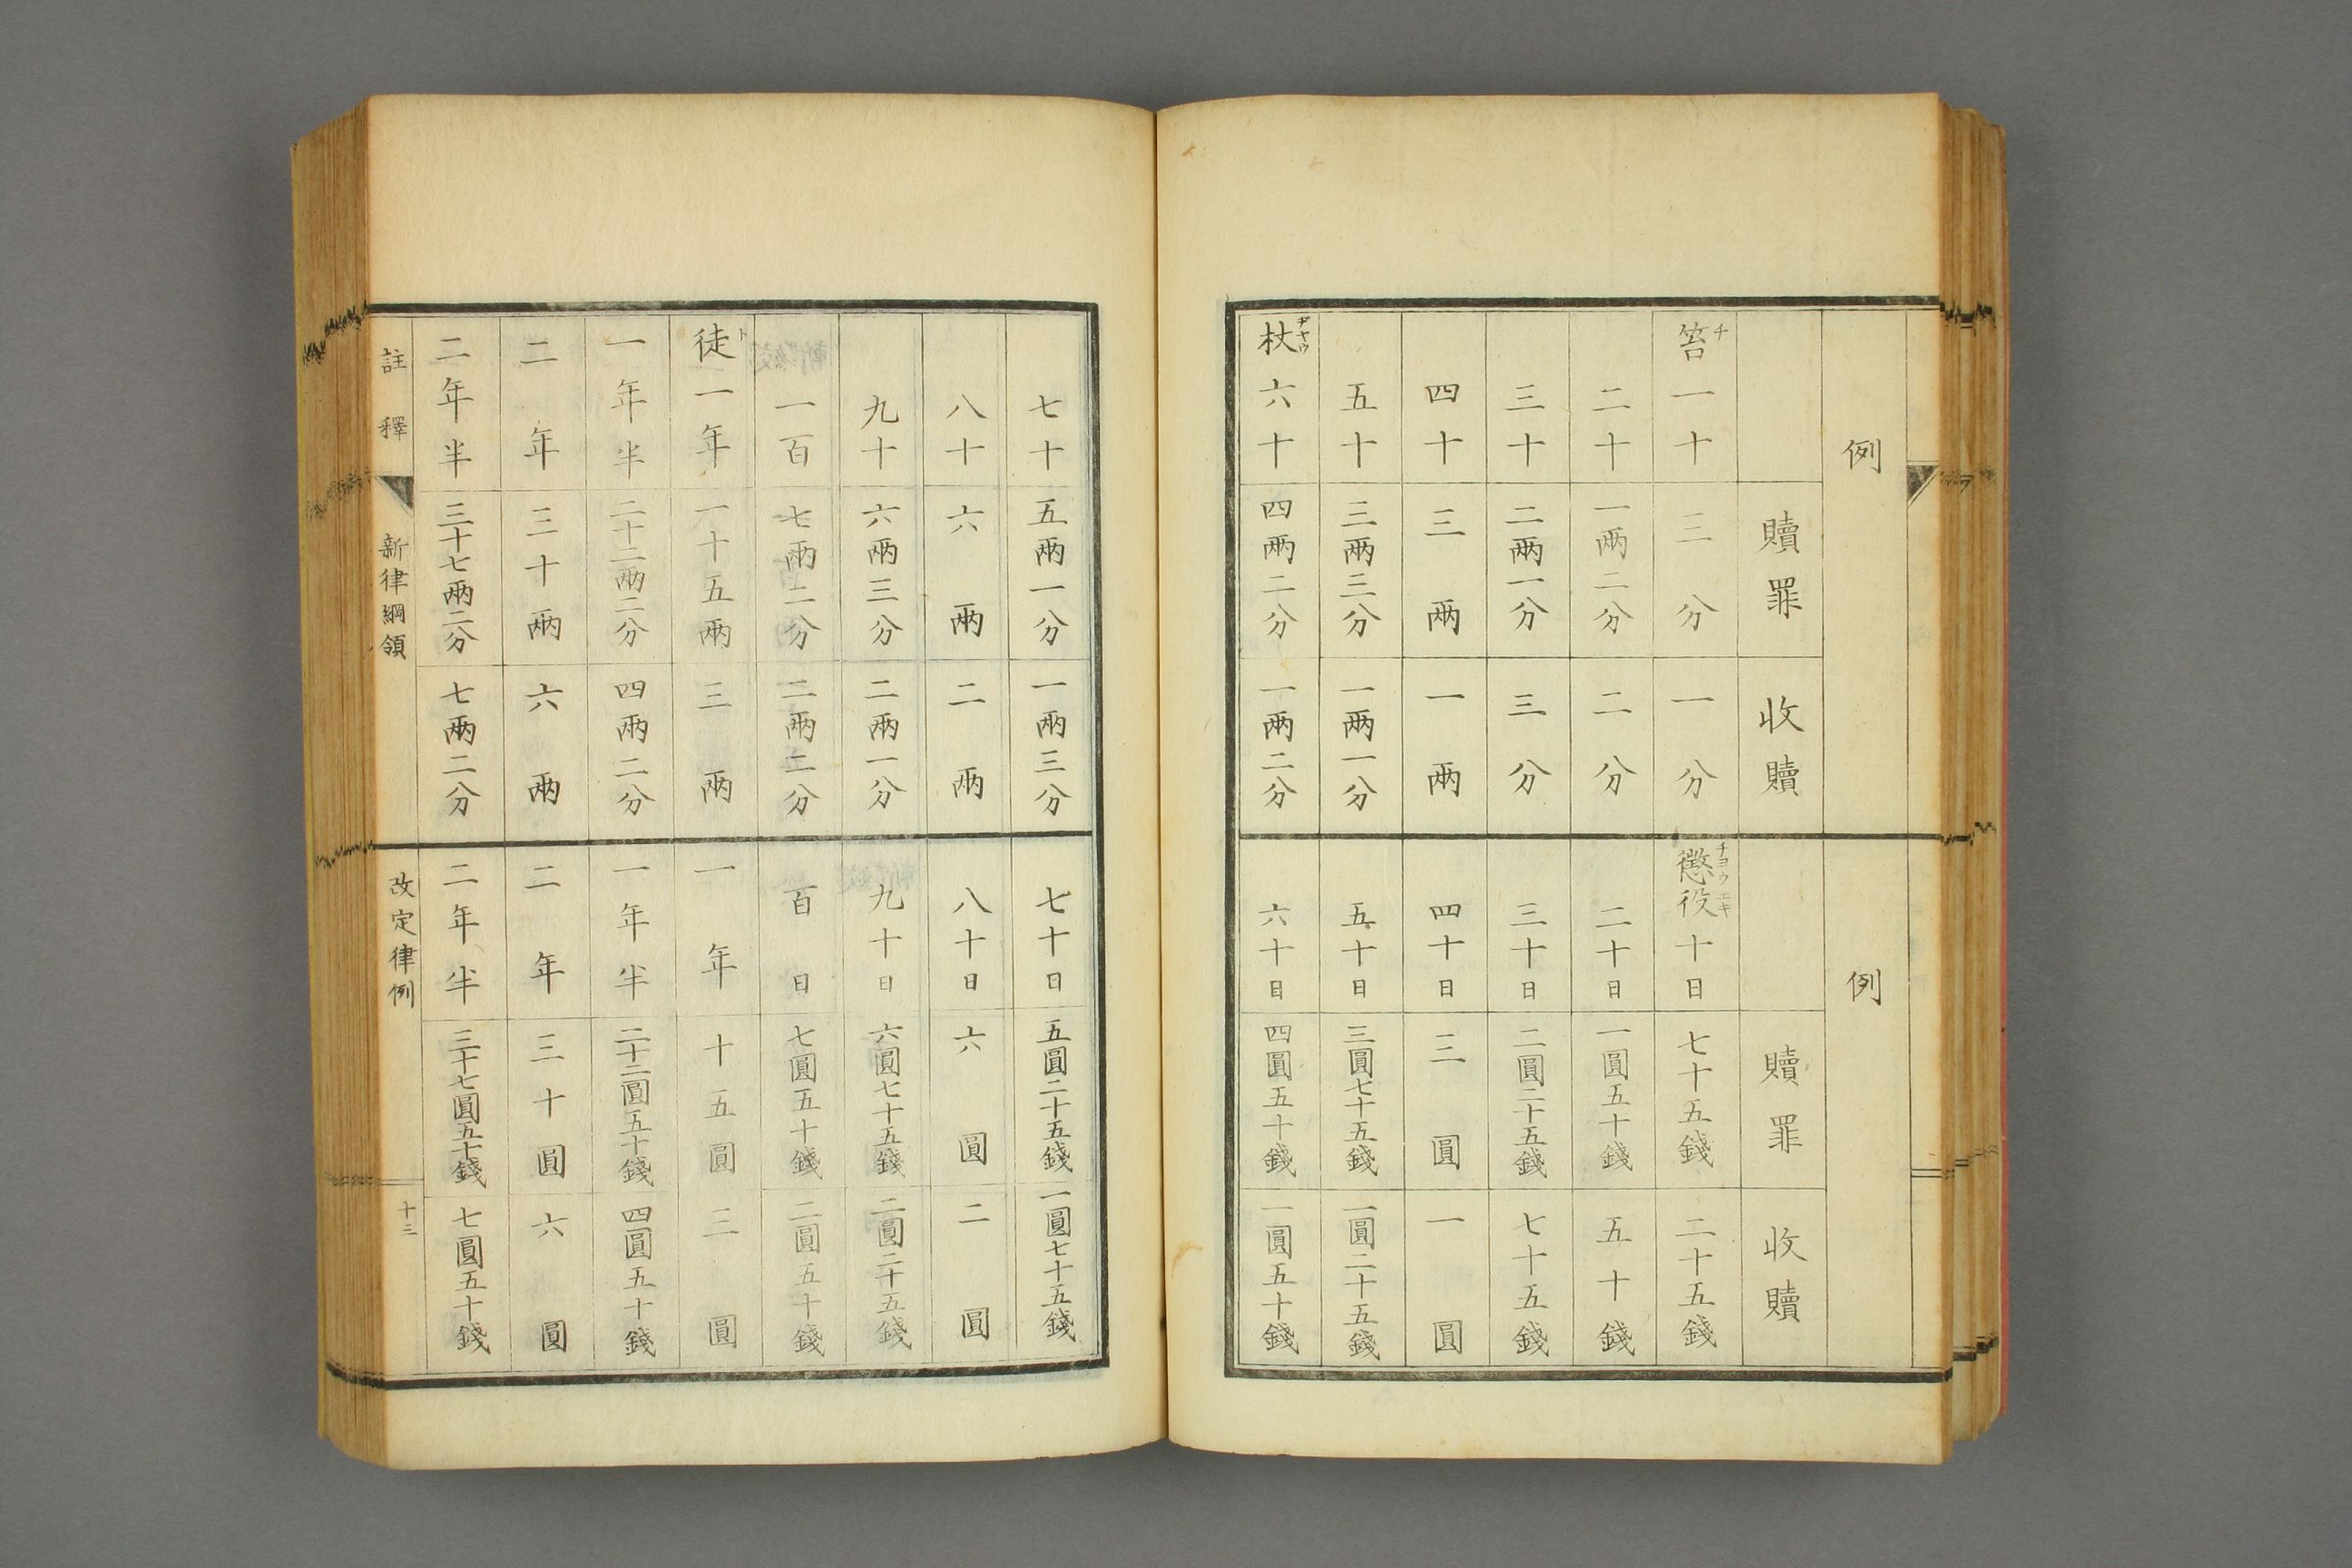 例
贖罪
收贖
笞チ一十
三分
一分
二十
一兩二分
二分
三十
二兩一分
三分
四十
三兩
一兩
五十
三兩三分
一兩一分
杖ヂヤウ六十
四兩二分
一兩二分
例
贖罪
收贖
懲役チヨウエキ十日
七十五錢
二十五錢
二十日
一圓五十錢
五十錢
三十日
二圓二十五錢
七十五錢
四十日
三圓
一圓
五十日
三圓七十五錢
一圓二十五錢
六十日
四圓五十錢
一圓五十錢
七十
五兩一分
一兩三分
八十
六兩
二兩
九十
六兩三分
二兩一分
一百
七兩二分
二兩二分
徒ト一年
一十五兩
三兩
一年半
二十二兩二分
四兩二分
二年
三十兩
六兩
二年半
三十七兩二分
七兩二分
七十日
五圓二十五錢
一圓七十五錢
八十日
六圓
二圓
九十日
六圓七十五錢
二圓二十五錢
百日
七圓五十錢
二圓五十錢
一年
十五圓
三圓
一年半
二十二圓五十錢
四圓五十錢
二年
三十圓
六圓
二年半
三十七圓五十錢
七圓五十錢
註釋
新律綱領
改定律例
十三